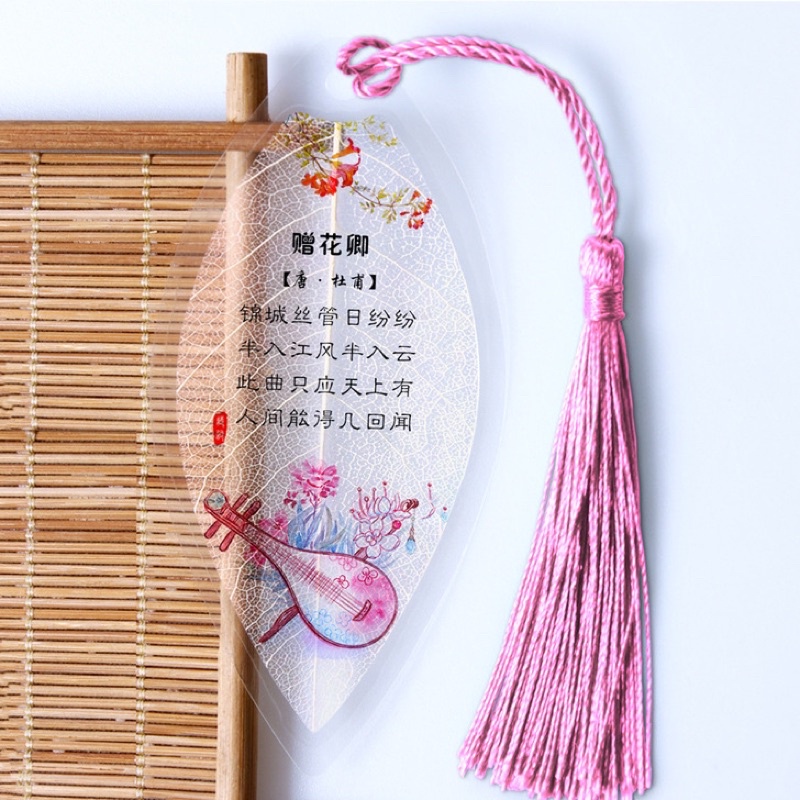 赠花卿
【唐·杜甫】
锦城丝管日纷纷
半入江风半入云
此曲只应天上有
人间能得几回闻